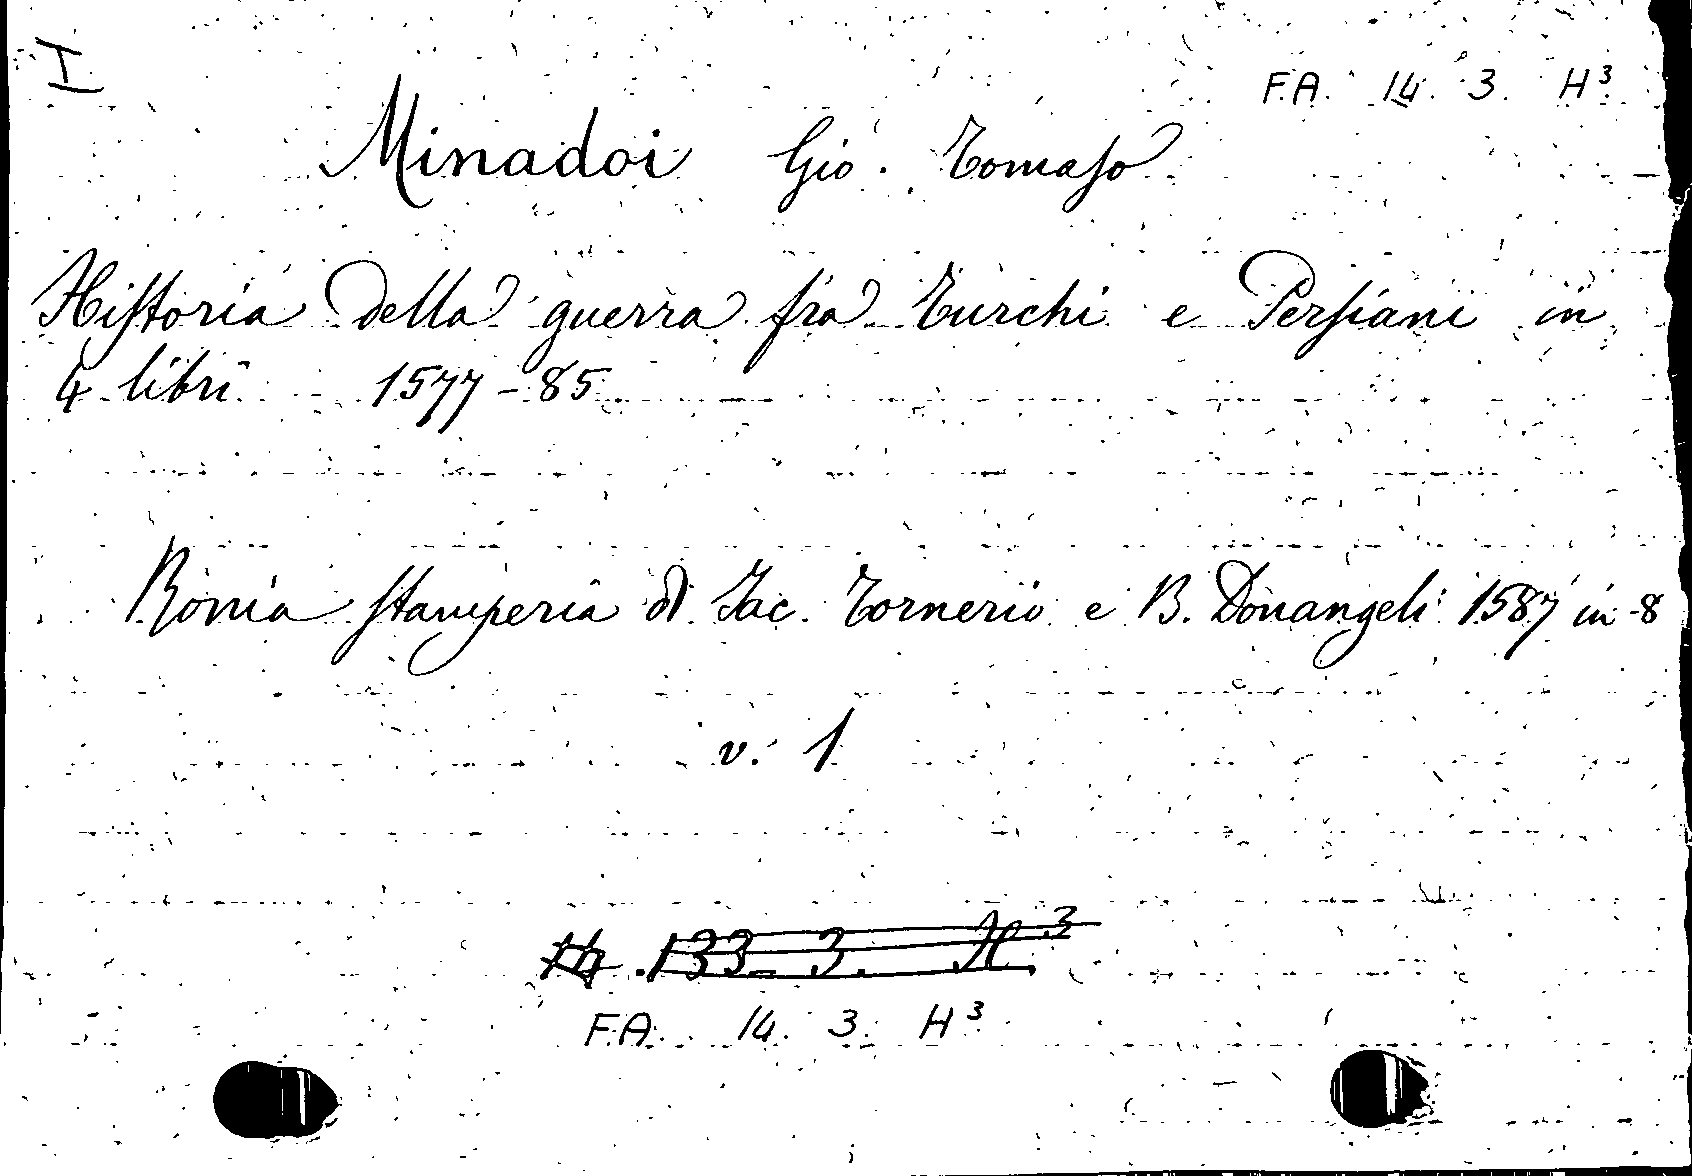 I
F.A. 14. 3. H³
Minadoi Gio. Tomaso
Historia della guerra fra Turchi e Persiani in
4 libri 1577-85
Roma stamperia di Jac. Tornerio e B. Donangeli 1587 in-8
v. 1
133 3. H³
F.A. 14. 3. H³